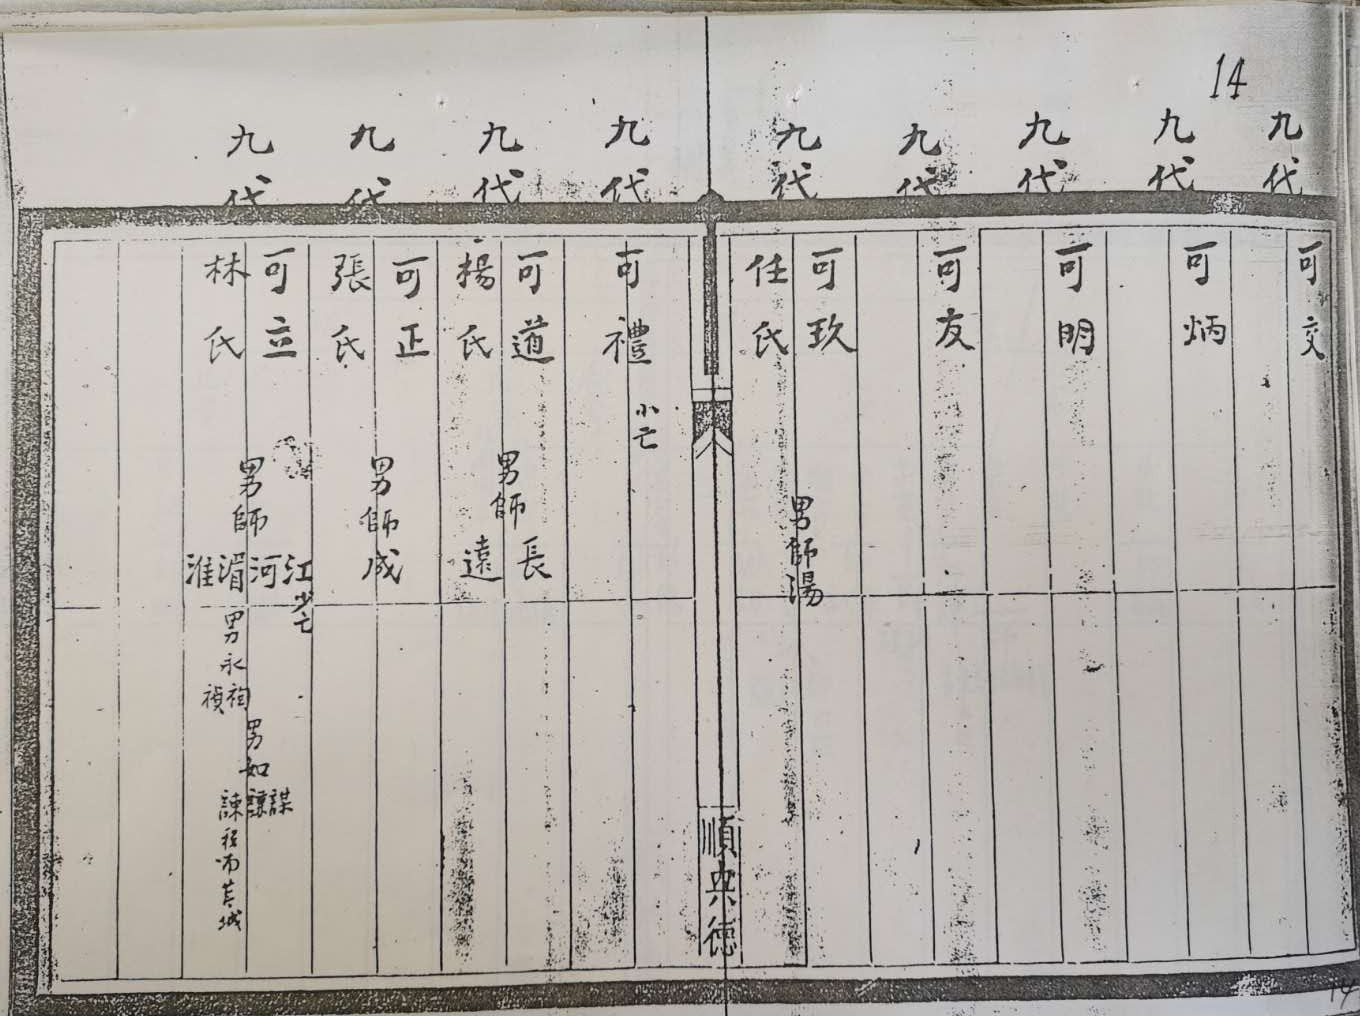 14
九代
可交
九代
可炳
九代
可明
九代
可友
九代
可玖
任氏
男師湯
順興德
九代
可禮
小亡
九代
可道
楊氏
男師
長
遠
九代
可正
張氏
男師成
九代
可立
林氏
男師
江
少亡
河
湄
淮
男永
祠
禎
男如
謀
諫
14